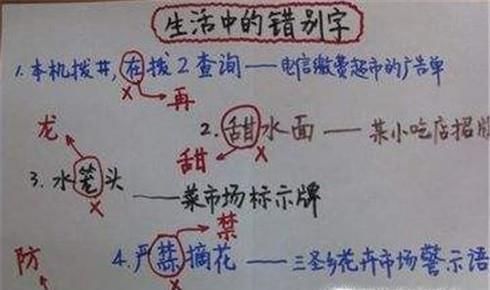 生活中的错别字
1.本机拨井,在拨2查询——电信缴费超市的广告单
再
龙
2.甜水面——某小吃店招牌
甜
3.水笼头——菜市场标示牌
禁
4.严禁摘花——三圣乡花卉市场警示语
防